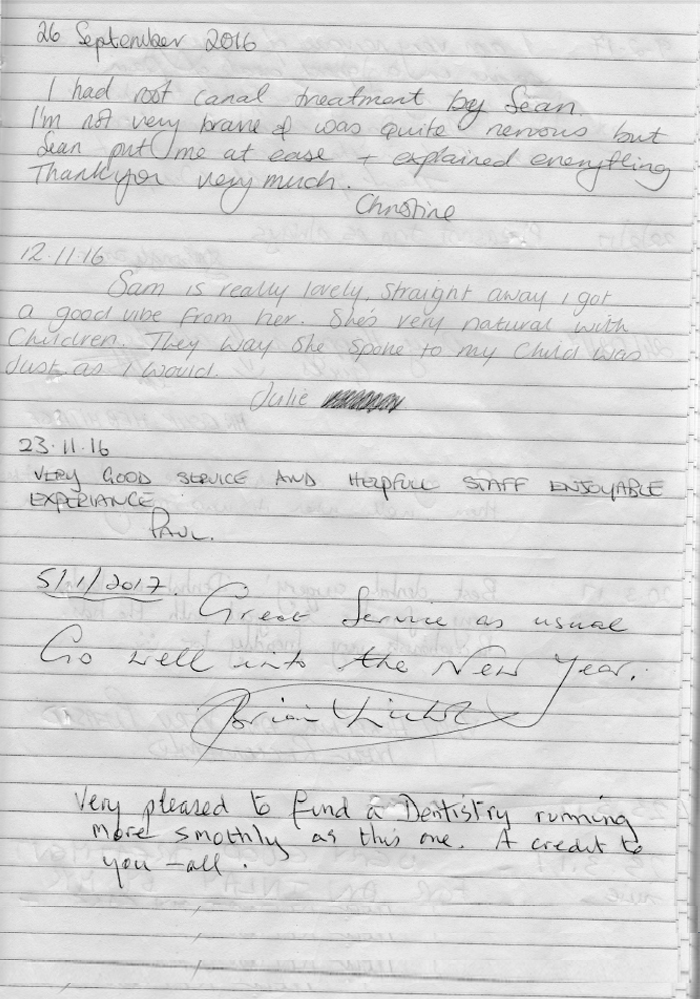 26 September 2016
I had root canal treatment by Sean.
I'm not very brave & was quite nervous but
Sean put me at ease + explained everything
Thankyou very much.
Christine
12.11.16
Sam is really lovely, straight away i got
a good vibe from her. She's very natural with
Children. They way she spoke to my child was
Just as I would.
Julie
23.11.16
VERY GOOD SERVICE AND HELPFULL STAFF ENJOYABLE
EXPERIANCE
PAUL.
5/1/2017. Great Service as usual
Go well into the New Year.
Brian
Very pleased to find a Dentistry running
more smothly as this one. A credit to
you-all.